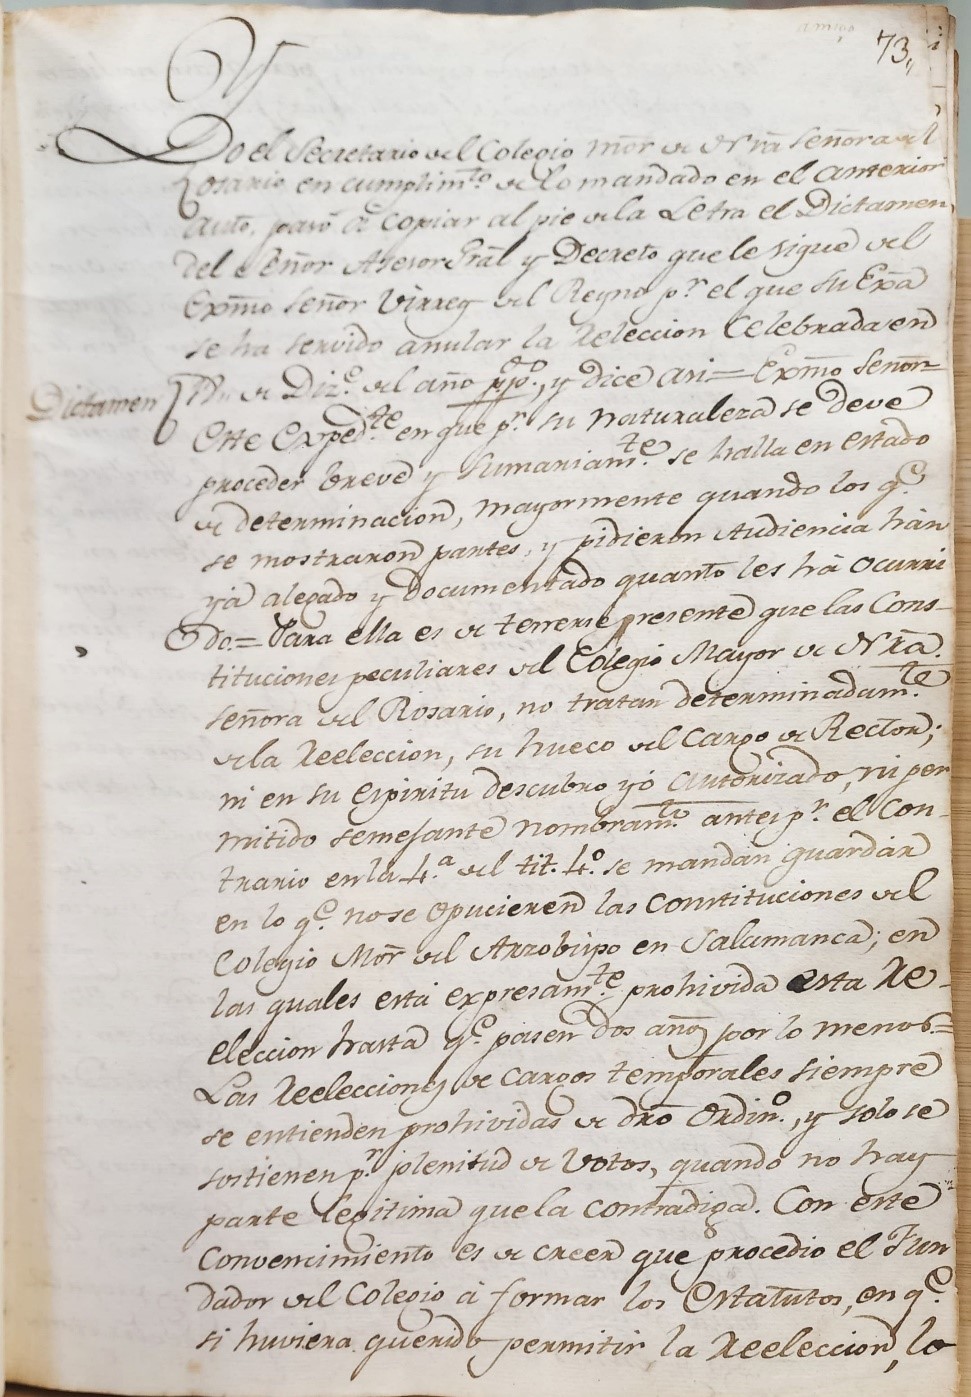 73,,
Yo el Secretario del Colegio mõr de Nrã Señora del
Rosario en cumplim.to de lo mandado en el anterior
auto, pasó à copiar al pie de la Letra el Dictamen
del Señor Asesor Grãl y Decreto que le sigue del
Exm̃o Señor Virrey del Reyno p.r el que Su Exã
se ha servido anular la Reeleccion Celebrada en
Dictamen
de Diz.e del año ppdo., y dice asi = Exm̃o Señor =
Este Exped.te en que p.r su naturaleza se deve
proceder breve y sumariam.te se halla en estado
de determinacion, mayormente quando los q.e
se mostraron partes, y pidieron Audiencia hàn
yà alegado y documentado quanto les hà ocurri
do. = Para ella es de tenerse presente que las Cons-
tituciones peculiares del Colegio Mayor de Nrã.
Señora del Rosario, no tratan determinadam.te
de la Reeleccion, su hueco del Cargo de Rector;
ni en su Espiritu descubro yó autorizado, ni per
mitido semejante nombram.to antes p.r el con-
trario en la 4.a del tit. 4.o se mandan guardàr
en lo q.e no se opucieren las constituciones del
Colegio Mõr del Arzobispo en Salamanca; en
las quales està expresam.te prohivida esta Re-
eleccion hasta q.e pasen dos años por lo menos. =
Las Reelecciones de cargos temporales siempre
se entienden prohividas de drõ Ordin.o, y solo se
sostienen p.r plenitud de Votos, quando no hay
parte legitima que la contradiga. Con este
Convencimiento es de creer que procedio el Fun
dador del Colegio à formar los Estatutos, en q.e
si huviera querido permitir la Reeleccion, lo